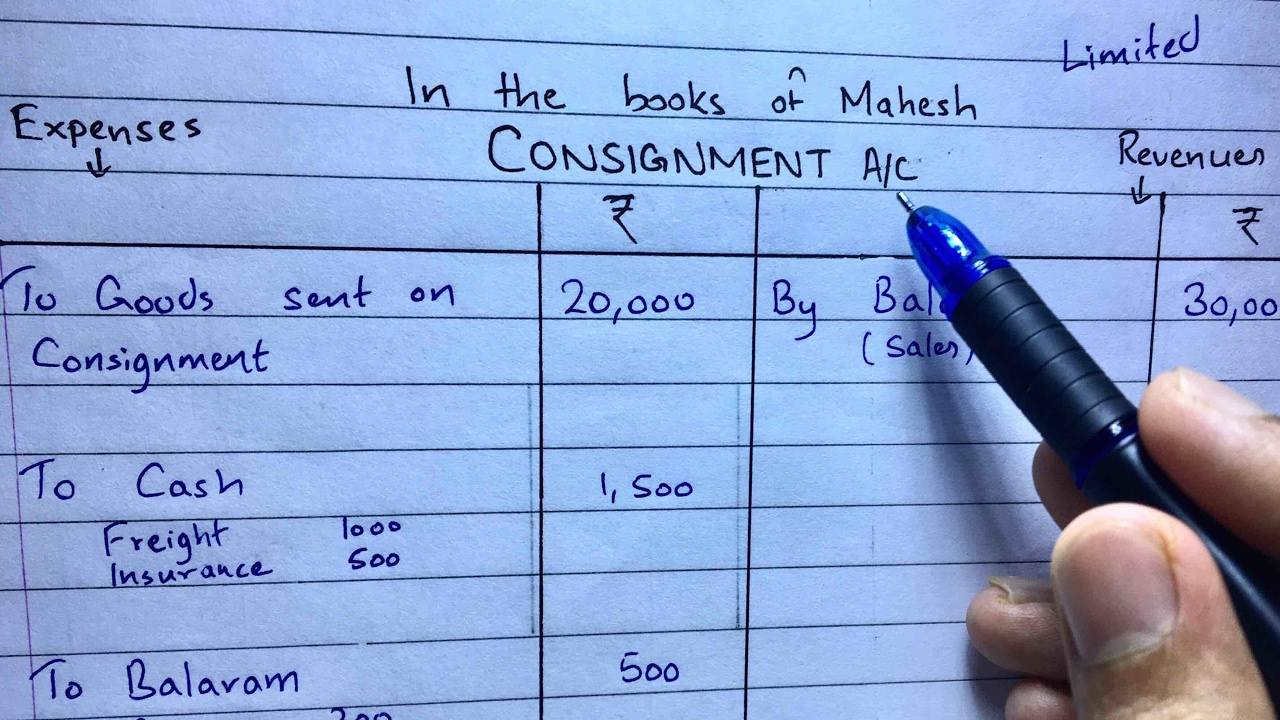 Limited
In the books of Mahesh
Expenses
CONSIGNMENT A/C
Revenues
₹ ₹
To Goods sent on 20,000 By 30,00
Consignment (Sales)
To Cash 1,500
Freight 1000
Insurance 500
To Balaram 500